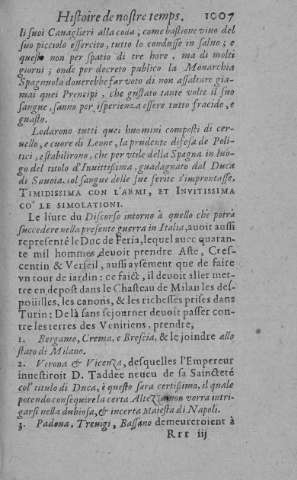 Histoire de nostre temps. 1007
li suoi Caualieri alla coda, come bastione viuo del
suo picciolo essercito, tutto lo condusse in saluo; e
questo non per spatio di tre hore, ma di molti
giorni; onde per decreto publico la Monarchia
Spagnuola douerebbe far voto di non assaltare gia-
mai quei Prencipi, che gustato tante volte il suo
sangue, sanno per isperienza essere tutto fracido, e
guasto.
Lodarono tutti quei huomini composti di cer-
uello, e cuore di Leone, la prudente disposa de Poli-
tici, e stabilirono, che per vtile della Spagna in luo-
go del titolo d'Inuitissima, guadagnato dal Duca
di Sauoia, col sangue delle sue ferite s'improntasse,
TIMIDISSIMA CON L'ARMI, ET INVITISSIMA
CO' LE SIMOLATIONI.
Le liure du Discorso intorno à quello che potrà
succedere nella presente guerra in Italia, auoit aussi
representé le Duc de Feria, lequel auec quaran-
te mil hommes deuoit prendre Aste, Cres-
centin & Verseil, aussi aysement que de faire
vn tour de iardin: ce faict, il deuoit aller met-
tre en depost dans le Chasteau de Milan les des-
poüilles, les canons, & les richesses prises dans
Turin: De là sans sejourner deuoit passer con-
tre les terres des Venitiens, prendre,
1. Bergamo, Crema, e Brescia, & le joindre allo
stato di Milano.
2. Verona & Vicenza, desquelles l'Empereur
inuestiroit D. Taddée neueu de sa Saincteté
col' titulo di Duca, è questo sara certissimo, il quale
potendo consequire la certa Altezza non vorra intri-
garsi nella dubiosa, & incerta Maiesta di Napoli.
3. Padoua, Treuigi, Bassano demeureroient à
Rrr iij